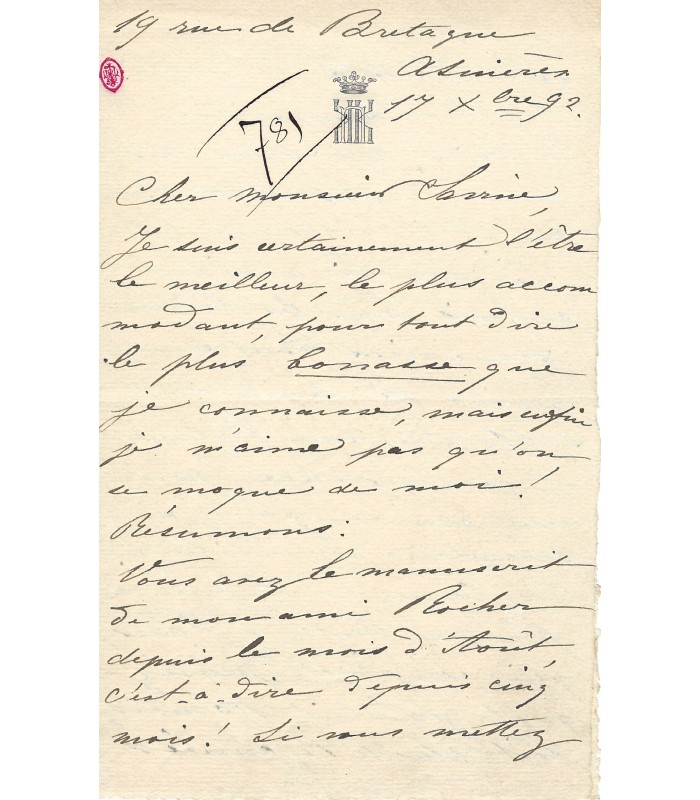 19 rue de Bretagne
Asnières
17 Xbre 92.
781
Cher monsieur
Je suis certainement l'être
le meilleur, le plus accom
modant, pour tout dire
le plus bonasse que
je connaisse, mais enfin
je n'aime pas qu'on
se moque de moi!
Résumons:
Vous avez le manuscrit
de mon ami Rocher
depuis le mois d'Août,
c'est-à-dire depuis cinq
mois! Si vous mettez